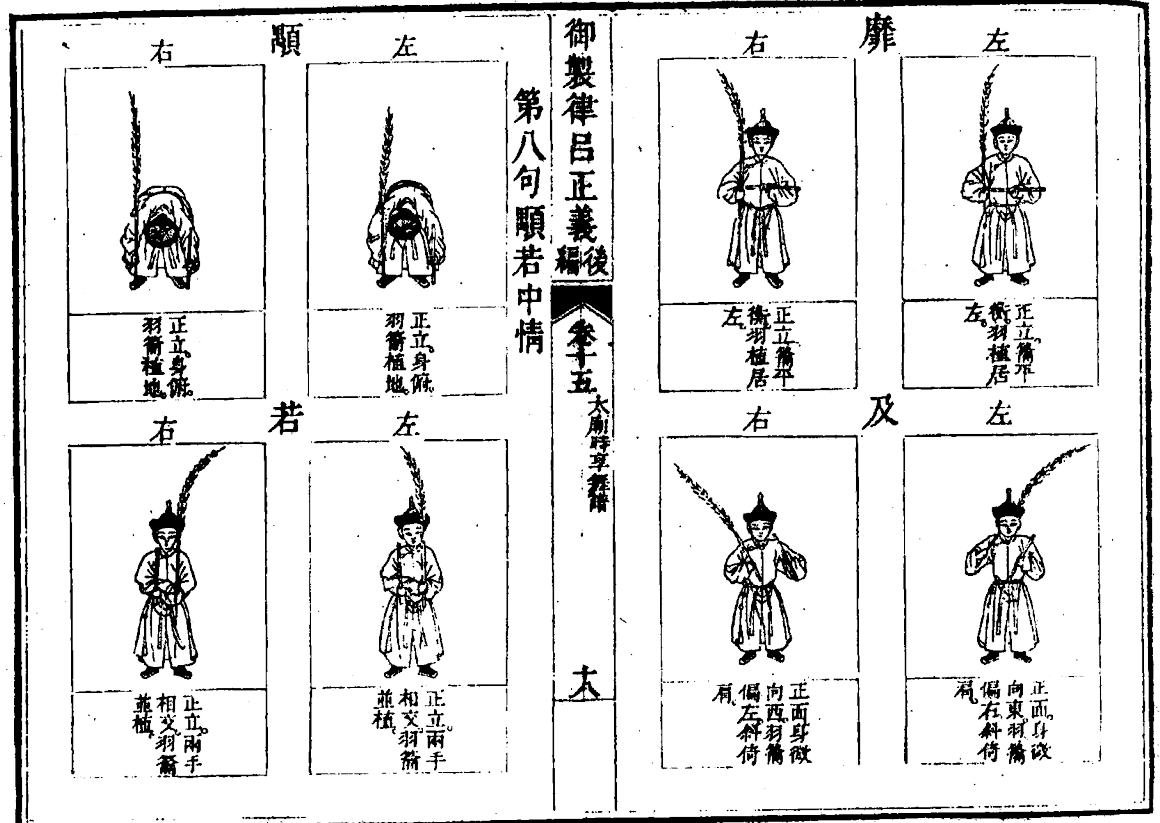 靡
左
正立。籥平
衡。羽植居
左。
右
正立。籥平
衡。羽植居
左。
及
左
正面。身微
向東。羽籥
偏右。斜倚
肩。
右
正面。身微
向西。羽籥
偏左。斜倚
肩。
御製律呂正義後編
卷十五
太廟時享舞譜
十八
第八句顒若中情
顒
左
正立。身俯。
羽籥植地。
右
正立。身俯。
羽籥植地。
若
左
正立。兩手
相交。羽籥
並植。
右
正立。兩手
相交。羽籥
並植。